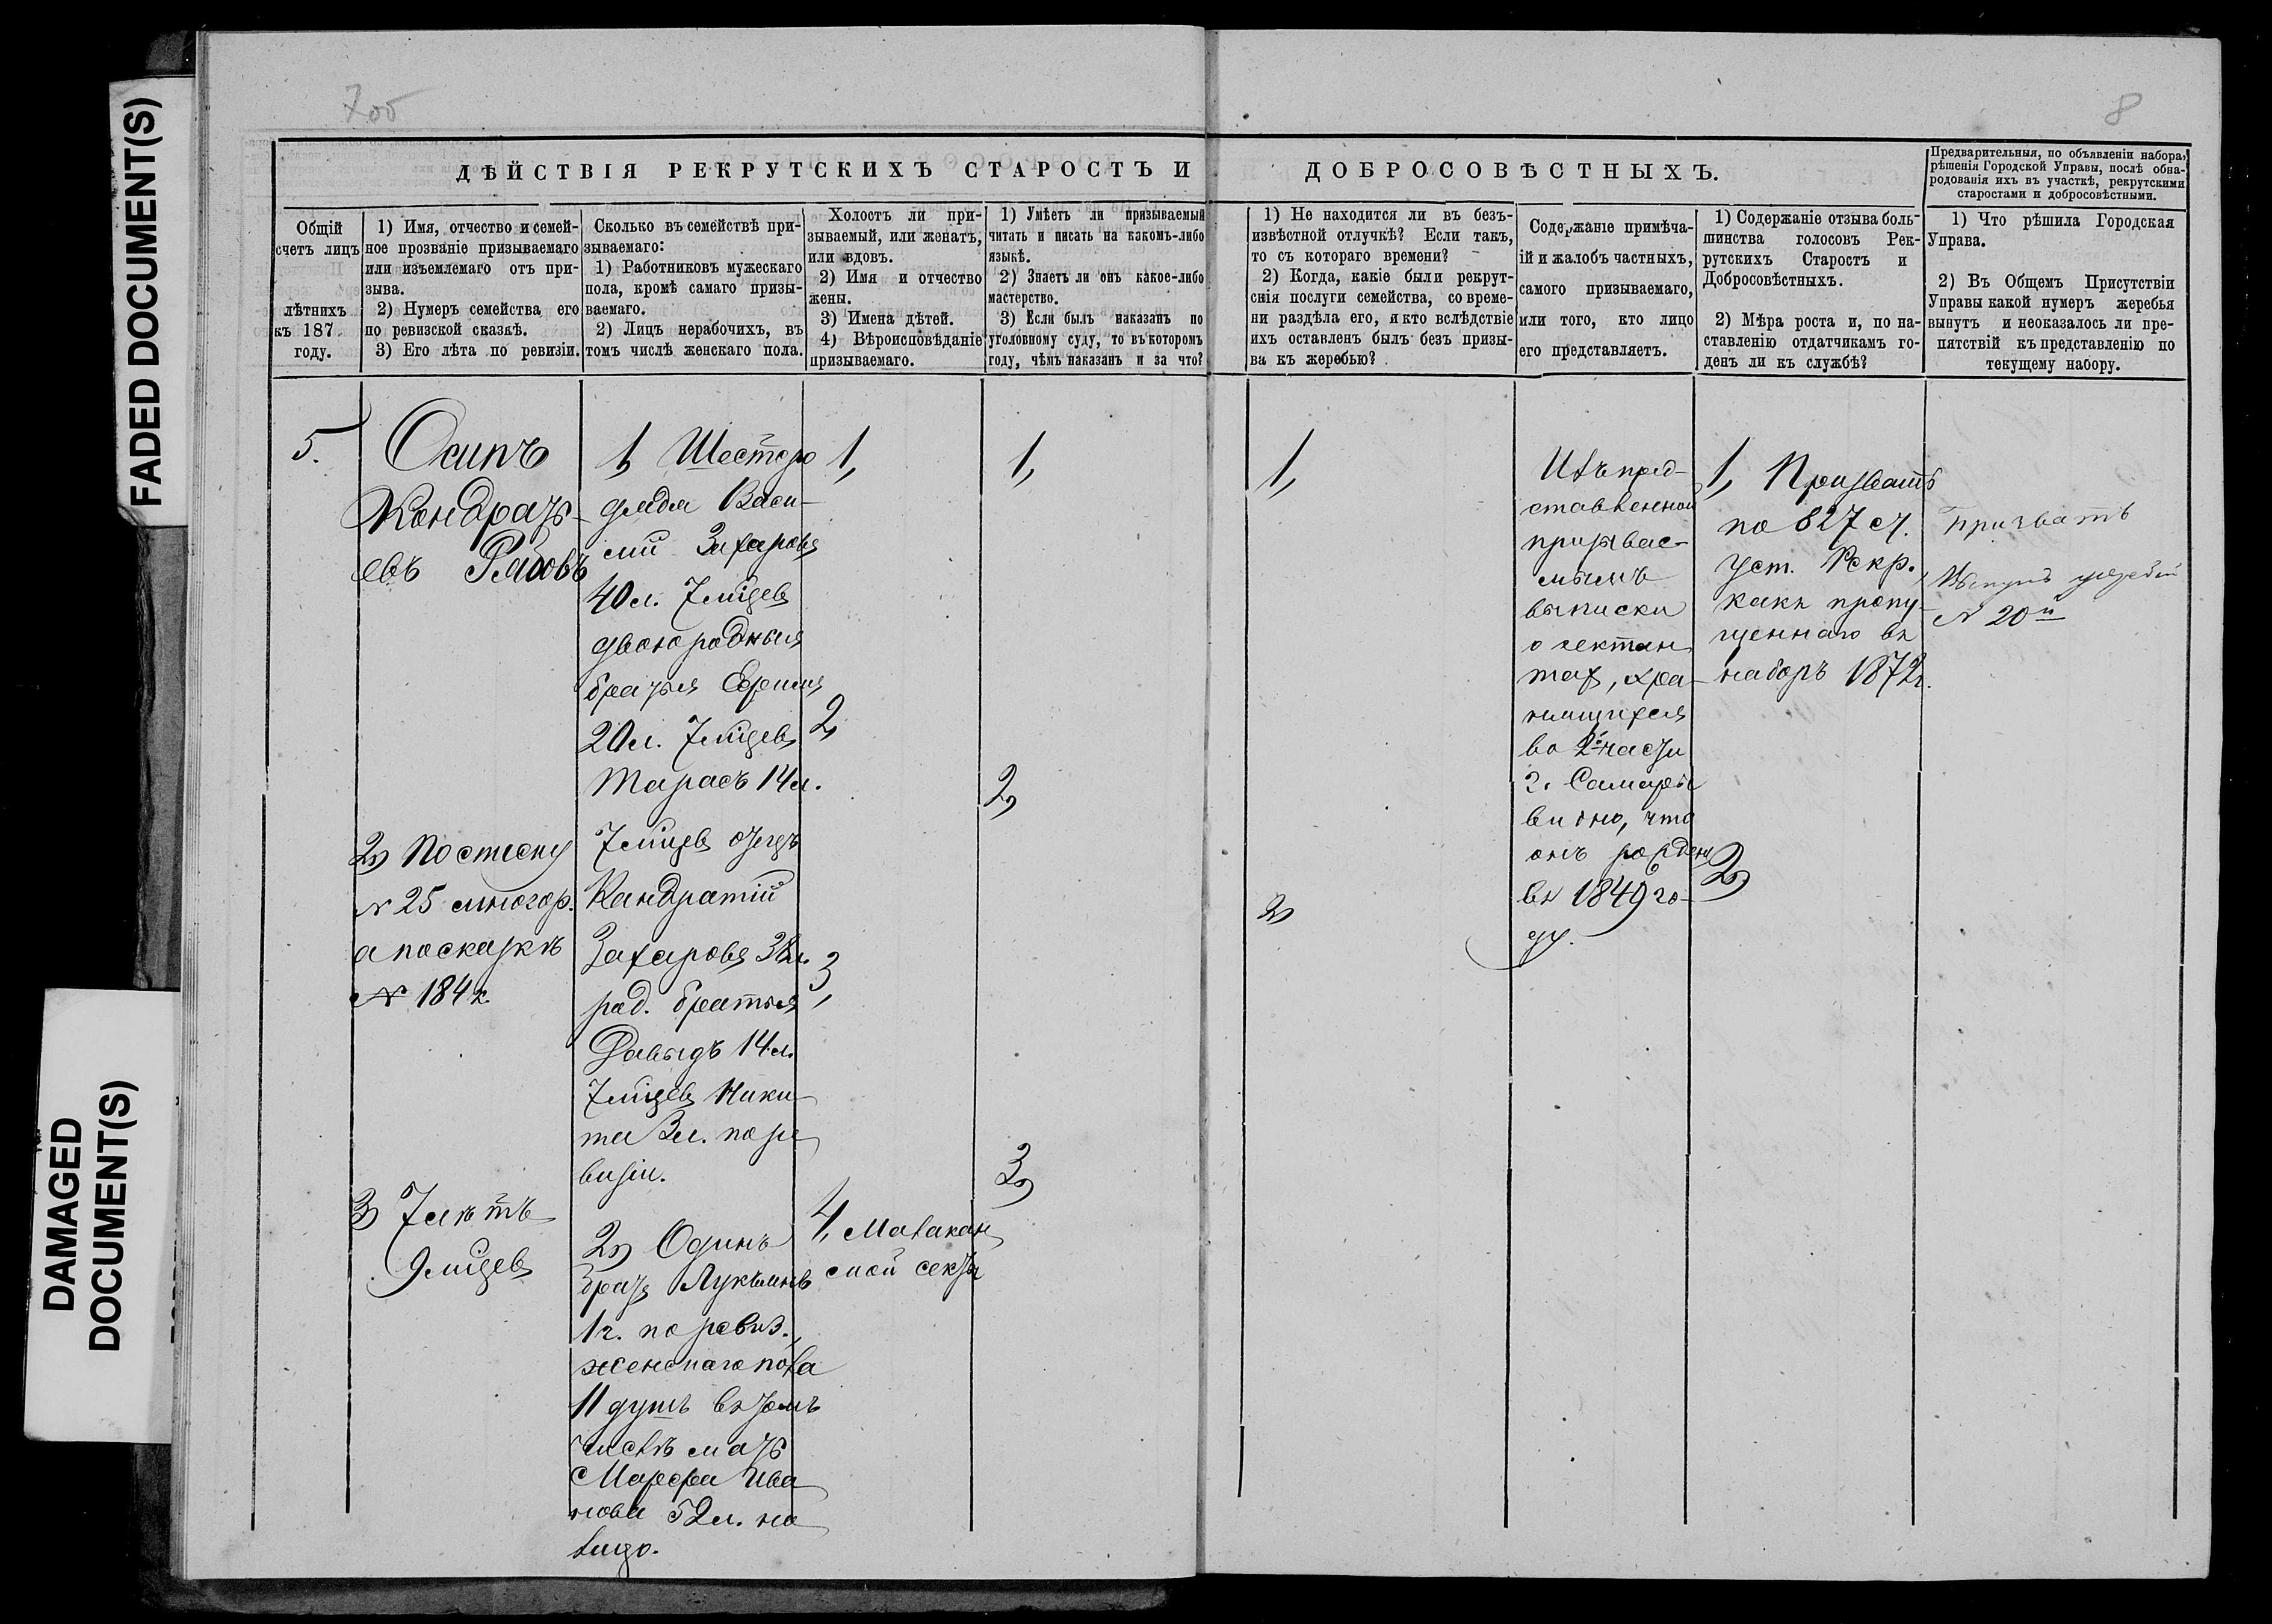 FADED DOCUMENT(S)
DAMAGED
DOCUMENT(S)
7об
8
ДѢЙСТВІЯ РЕКРУТСКИХЪ СТАРОСТЪ И ДОБРОСОВѢСТНЫХЪ.
Предварительныя, по объявленіи набора,
рѣшенія Городской Управы, послѣ обна-
родованія ихъ въ участкѣ, рекрутскими
старостами и добросовѣстными.
Общій
счетъ лицъ
лѣтнихъ
къ 187
году.
1) Имя, отчество и семей-
ное прозваніе призываемаго
или изъемлемаго отъ при-
зыва.
2) Нумеръ семейства его
по ревизской сказкѣ.
3) Его лѣта по ревизіи.
Сколько въ семействѣ при-
зываемаго:
1) Работниковъ мужескаго
пола, кромѣ самаго призы-
ваемаго.
2) Лицъ нерабочихъ, въ
томъ числѣ женскаго пола.
Холостъ ли при-
зываемый, или женатъ,
или вдовъ.
2) Имя и отчество
жены.
3) Имена дѣтей.
4) Вѣроисповѣданіе
призываемаго.
1) Умѣетъ ли призываемый
читать и писать на какомъ-либо
языкѣ.
2) Знаетъ ли онъ какое-либо
мастерство.
3) Если былъ наказанъ по
уголовному суду, то въ которомъ
году, чѣмъ наказанъ и за что?
1) Не находится ли въ безъ-
извѣстной отлучкѣ? Если такъ,
то съ котораго времени?
2) Когда, какіе были рекрут-
скія послуги семейства, со време-
ни раздѣла его, и кто вслѣдствіе
ихъ оставленъ былъ безъ призы-
ва къ жеребью?
Содержаніе примѣча-
ій и жалобъ частныхъ,
самого призываемаго,
или того, кто лицо
его представляетъ.
1) Содержаніе отзыва боль-
шинства голосовъ Рек-
рутскихъ Старостъ и
Добросовѣстныхъ.
2) Мѣра роста и, по на-
ставленію отдатчикамъ го-
денъ ли къ службѣ?
1) Что рѣшила Городская
Управа.
2) Въ Общемъ Присутствіи
Управы какой нумеръ жеребья
вынутъ и неоказалось ли пре-
пятствій къ представленію по
текущему набору.
5.
Осипъ
Кондрать-
евъ Рябовъ
2) По списку
№ 25 многор.
а по сказкѣ
№ 184 г.
3) 7 лѣтъ
9 мѣсцев
1) Шестеро
дядя Васи-
лій Захаровъ
40 л. 7 мѣцев
двоюродныя
братья Ефимъ
20 л. 7 мѣцев
Тарасъ 14 л.
7 мѣцев отецъ
Кандратій
Захаровъ 32 л.
род. братья
Давыдъ 14 л.
7 мѣцев Ники-
та 3 л. по ре
визіи.
2) Одинъ
братъ Лукьянъ
1 г. по ревиз.,
женскаго пола
11 душъ въ томъ
числѣ мать
Марфа Ива
нова 52 л. на
лицо.
1,
2,
3,
4, Малакан
ской секты
1,
2,
3)
1,
2)
Изъ пред-
ставленной
призывае-
мымъ
выписки
о сектан
тах, хра-
нящихся
во 2й части
г. Самары
видно, что
онъ рожденъ
въ 1849 го-
ду.
1, Призвать
по 827 ст.
Уст. Рекр.,
какъ пропу-
щеннаго въ
наборъ 1872 г.
2)
Призвать
Вынулъ жеребій
№ 20й